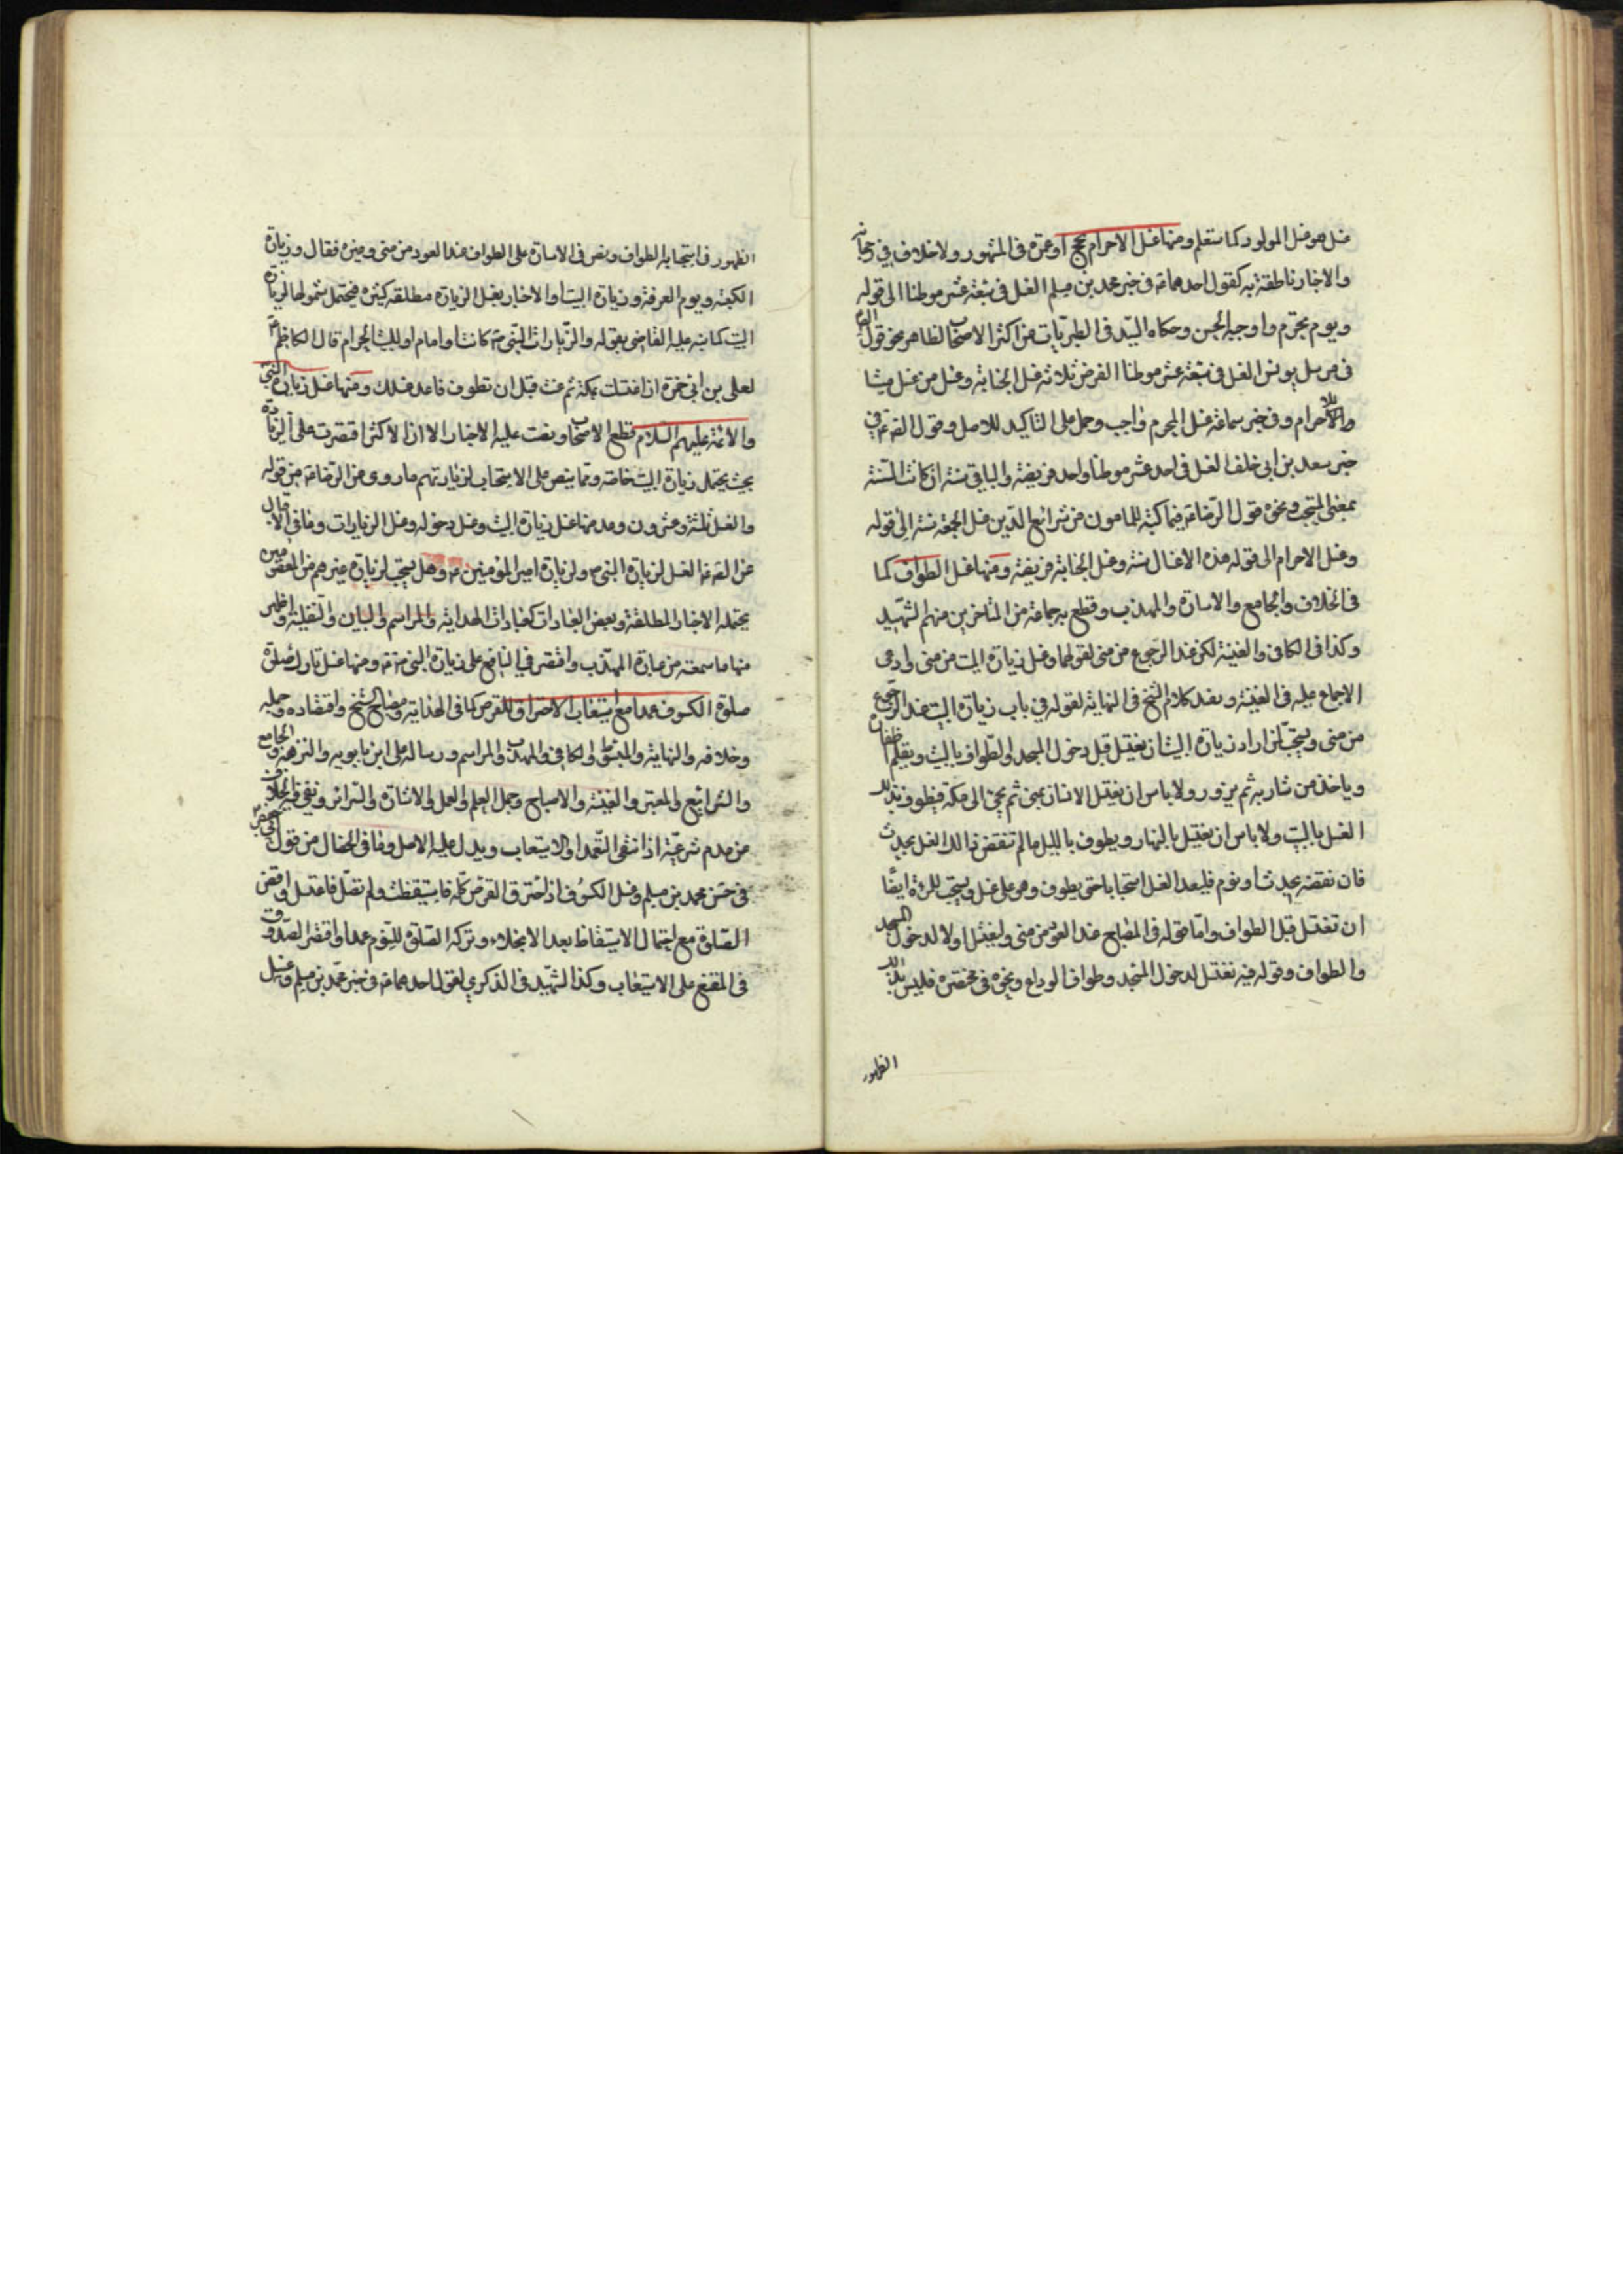 غسل هو غسل المولود كما ستعلم ومنها غسل الاحرام بحج او عمرة فى المشهور ولا خلاف في رجحانه
والاخبار ناطقة به كقول احدهما ع فى خبر محمد بن مسلم الغسل فى سبعة عشر موطنا الى قوله
ويوم تحرم واوجبه الحسن وحكاه السيد فى الطبريات عن اكثر الاصحاب لظاهر نحو قول الص
فى مرسل يونس الغسل فى سبعة عشر موطنا الفرض ثلاثة غسل الجنابة وغسل من غسل ميتا
والاحرام وفى خبر سماعة غسل المحرم واجب وحمل على التاكيد للاصل وقول الص ع في
خبر سعد بن ابى خلف الغسل فى احد عشر موطنا واحد فريضة والباقى سنة ان كانت السنة
بمعنى المستحب ونحوه قول الرضا ع فيما كتبه للمامون من شرائع الدين غسل الجمعة سنة الى قوله
وغسل الاحرام الى قوله هذه الاغسال سنة وغسل الجنابة فريضة ومنها غسل الطواف كما
فى الخلاف والجامع والاشارة والمهذب وقطع به جماعة من المتاخرين منهم الشهيد
وكذا فى الكافى والغنية لكن عند الرجوع من منى لقولهما وغسل زيارة البيت من منى وادعى
الاجماع عليه فى الغنية وبعد كلام الشيخ فى النهاية لقوله في باب زيارة البيت عند الرجوع
من منى ويستحب لمن اراد زيارة البيت ان يغتسل قبل دخول المسجد والطواف بالبيت ويقلم اظفاره
وياخذ من شاربه ثم يزور ولا باس ان يغتسل الانسان بمنى ثم يجئ الى مكة فيطوف بذلك
الغسل بالبيت ولا باس ان يغتسل بالنهار ويطوف بالليل ما لم ينقض ذالك الغسل بحدث
فان نقضه بحدث او نوم فليعد الغسل استحبابا حتى يطوف وهو على غسل ويستحب للمرئة ايضا
ان تغتسل قبل الطواف واما قوله فى المصباح عند العود من منى وليغتسل اولا لدخول المسجد
والطواف وقوله فيه تغتسل لدخول المسجد وطواف الوداع ونحوه فى مختصره فليس بذلك
الظهور
الظهور فى استحبابه للطواف ونص فى الاشارة على الطواف عند العود من منى وغيره فقال وزيارة
الكعبة ويوم العرفة وزيارة البيت والاخبار بغسل الزيارة مطلقه كثيره فيحتمل شمولها لزيارة
البيت كما نبه عليه القاضى بقوله والزيارات لنبى ص كانت او امام او للبيت الحرام قال الكاظم ع
لعلى بن ابى حمزه اذا اغتسلت بمكة ثم نمت قبل ان تطوف فاعد غسلك ومنها غسل زيارة النبى
والائمة عليهم السلام قطع الاصحاب ونصت عليه الاخبار الا ان الاكثر اقتصرت على الزيارة
بحيث يحتمل زيارة البيت خاصة ومما ينص على الاستحباب لزيارتهم ما روى عن الرضا ع من قوله
والغسل ثلثة وعشرون وعد منها غسل زيارة البيت وغسل دخوله وغسل الزيارات وما فى الاقبال
عن الص ع الغسل لزيارة النبى ص ولزيارة امير المؤمنين ع وهل يستحب لزيارة غيرهم من المعصومين
يحتمله الاخبار المطلقة وبعض العبارات كعبارات الهداية والمراسم والبيان والنفلية واظهر
منها ما سمعته من عبارة المهذب واقتصر في النافع على زيارة النبى ص ومنها غسل تارك صلوة
صلوة الكسوف عمدا مع استيعاب الاحتراق للقرص كما فى الهداية ومصباح الشيخ واقتصاده وجمله
وخلافه والنهاية والمبسوط والكافى والمهذب والمراسم ورسالة على ابن بابويه والنزهة والجامع
والشرائع والمعتبر والغنية والاصباح وجمل العلم والعمل والاشارة والسرائر ونفى فيه الخلاف
من عدم شرعيته اذا انتفى التعمد او الاستيعاب ويدل عليه الاصل وما فى الخصال من قول ابى جعفر
فى حسن محمد بن مسلم وغسل الكسوف اذا احترق القرص كله فاستيقظت ولم تصل فاغتسل واقض
الصلوة مع احتمال الاستيقاظ بعد الانجلاء وتركه الصلوة للنوم عمدا واقتصر الصدوق
فى المقنع على الاستيعاب وكذا الشهيد فى الذكرى لقول احدهما ع فى خبر محمد بن مسلم وغسل